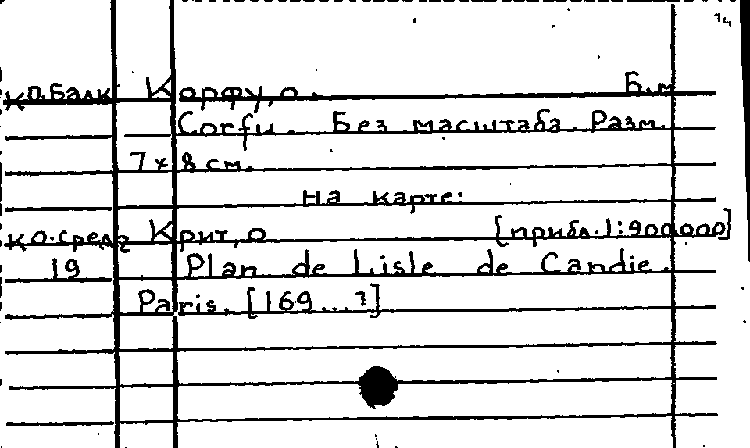 14
Ко.Балк Корфу, о. Б.м
Corfu. Без масштаба. Разм.
7 x 8 см.
На карте:
Ко.сред Крит, о [прибл. 1:900000]
19 Plan de Lisle de Candie.
Paris. [169...?]